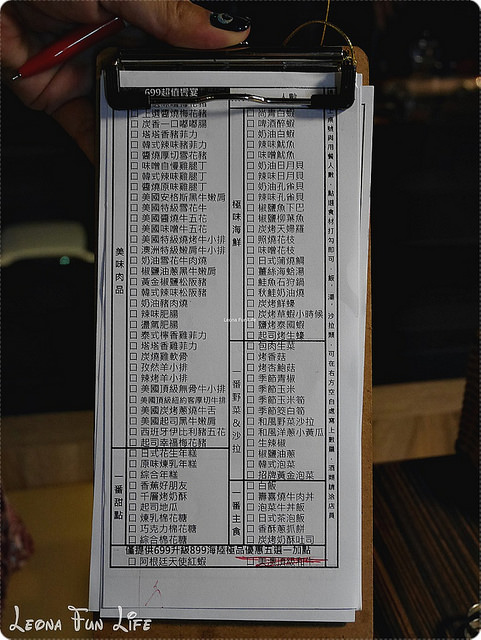 699超值饗宴
人數
美味肉品
上選醬燒梅花豬
炭香一口嘟嘟腸
塔塔香豬菲力
韓式辣味豬菲力
醬燒厚切雪花豬
味噌自慢雞腿丁
韓式辣味雞腿丁
醬燒原味雞腿丁
美國安格斯黑牛嫩肩
美國特級雪花牛
美國醬燒牛五花
美國味噌牛五花
美國特級燒烤牛小排
澳洲特級嫩肩牛小排
奶油雪花牛肉燒
椒鹽油蔥黑牛嫩肩
黃金椒鹽松阪豬
韓式辣味松阪豬
奶油豬肉燒
辣味肥腸
鹽蔥肥腸
泰式檸香雞菲力
塔塔香雞菲力
炭燒雞軟骨
孜然羊小排
辣烤羊小排
美國頂級無骨牛小排
美國頂級紐約客厚切牛排
美國炭烤蔥燒牛舌
美國起司黑牛嫩肩
西班牙伊比利豬五花
起司幸福梅花豬
一番甜點
日式花生年糕
原味煉乳年糕
綜合年糕
香蕉好朋友
千層烤奶酥
起司地瓜
煉乳棉花糖
巧克力棉花糖
綜合棉花糖
極味海鮮
尚青白蝦
啤酒醉蝦
奶油白蝦
辣味魷魚
味噌魷魚
奶油日月貝
辣味日月貝
奶油孔雀貝
辣味孔雀貝
椒鹽魚下巴
椒鹽柳葉魚
炭烤天婦羅
照燒花枝
味噌花枝
日式蒲燒鯛
薑絲海蛤湯
鮭魚石狩鍋
秋鮭奶油燒
炭烤鮮蠔
炭烤草蝦小時候
鹽烤泰國蝦
起司烤生蠔
一番野菜&沙拉
包肉生菜
烤香菇
烤杏鮑菇
季節青椒
季節玉米
季節玉米筍
季節筊白筍
和風野菜沙拉
和風洋蔥小黃瓜
生辣椒
椒鹽油蔥
韓式泡菜
招牌黃金泡菜
一番主食
白飯
壽喜燒牛肉丼
泡菜牛丼飯
日式茶泡飯
香酥蔥抓餅
炭烤奶酥吐司
僅提供699升級899海陸極品優惠五選一加點
阿根廷天使紅蝦
Leona Fun Life
LEONA FUN LIFE